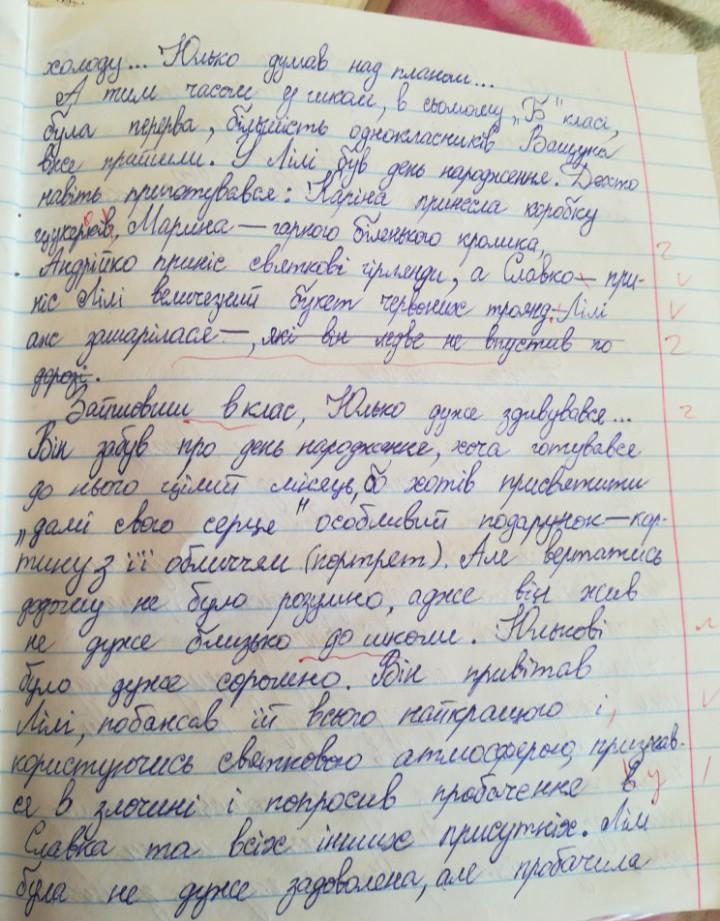 холоду... Юлько думав над планом...
А тим часом у школі, в сьомому „Б" класі,
була перерва, більшість однокласників Ващука
вже прийшли. У Лілі був день народження. Дехто
навіть приготувався: Каріна принесла коробку
цукерків, Марина — гарного біленького кролика,
Андрійко приніс святкові гірлянди, а Славко — при-
ніс Лілі величезний букет червоних троянд. Лілі
аж зашарілася —, які він ледве не впустив по
дорозі.
Зайшовши в клас, Юлько дуже здивувався...
Він забув про день народження, хоча готувався
до нього цілий місяць, бо хотів присвятити
„дамі свого серця" особливий подарунок — кар-
тину з її обличчям (портрет). Але вертатись
додому не було розумно, адже він жив
не дуже близько до школи. Юлькові
було дуже соромно. Він привітав
Лілі, побажав їй всього найкращого і,
користуючись святковою атмосферою, признав-
ся в злочині і попросив пробачення в
Славка та всіх інших присутніх. Лілі
була не дуже задоволена, але пробачила